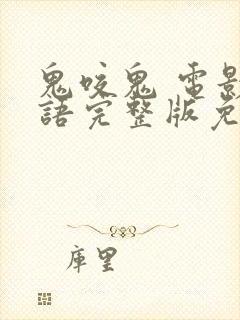 鬼咬鬼 電影
語完整版免
庫里